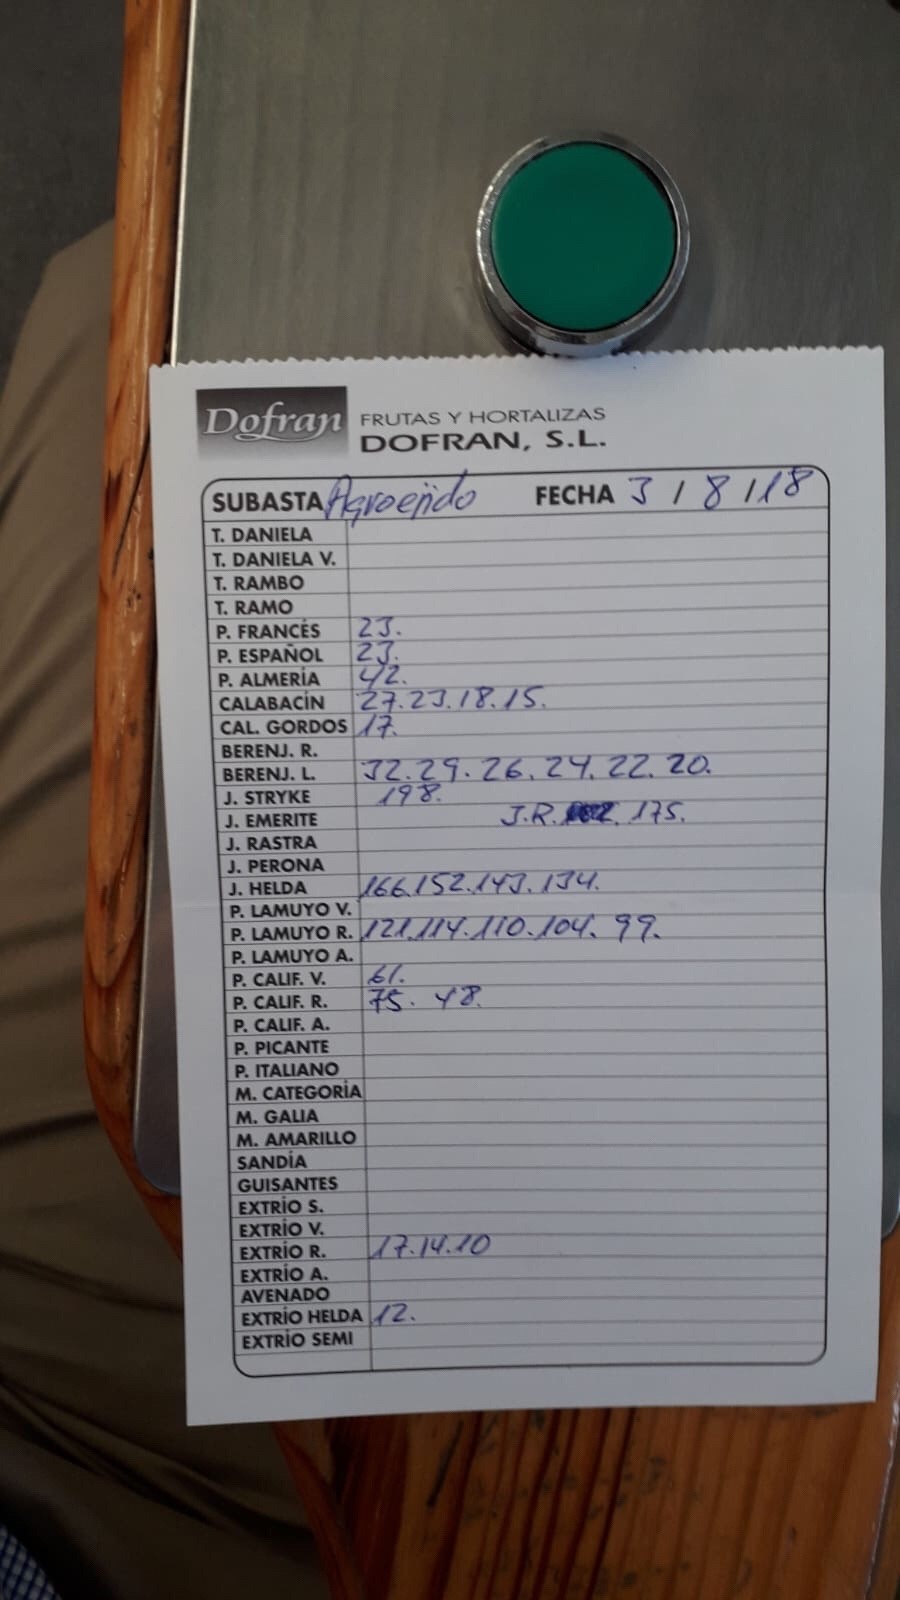 Dofran FRUTAS Y HORTALIZAS
DOFRAN, S.L.
SUBASTA Agroejido FECHA 3 / 8 / 18
T. DANIELA
T. DANIELA V.
T. RAMBO
T. RAMO
P. FRANCÉS 23.
P. ESPAÑOL 23.
P. ALMERÍA 42.
CALABACÍN 27.23.18.15.
CAL. GORDOS 17.
BERENJ. R.
BERENJ. L. 32.29.26.24.22.20.
J. STRYKE 198.
J. EMERITE J.R. 175.
J. RASTRA
J. PERONA
J. HELDA 166.152.143.134.
P. LAMUYO V.
P. LAMUYO R. 121.114.110.104.99.
P. LAMUYO A.
P. CALIF. V. 61.
P. CALIF. R. 75. 48.
P. CALIF. A.
P. PICANTE
P. ITALIANO
M. CATEGORÍA
M. GALIA
M. AMARILLO
SANDÍA
GUISANTES
EXTRÍO S.
EXTRÍO V.
EXTRÍO R. 17.14.10
EXTRÍO A.
AVENADO
EXTRÍO HELDA 12.
EXTRÍO SEMI